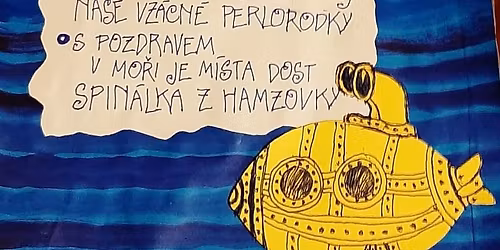 NAŠE VZÁCNÉ PERLORODKY
S POZDRAVEM
V MOŘI JE MÍSTA DOST
SPINÁLKA Z HAMZOVKY